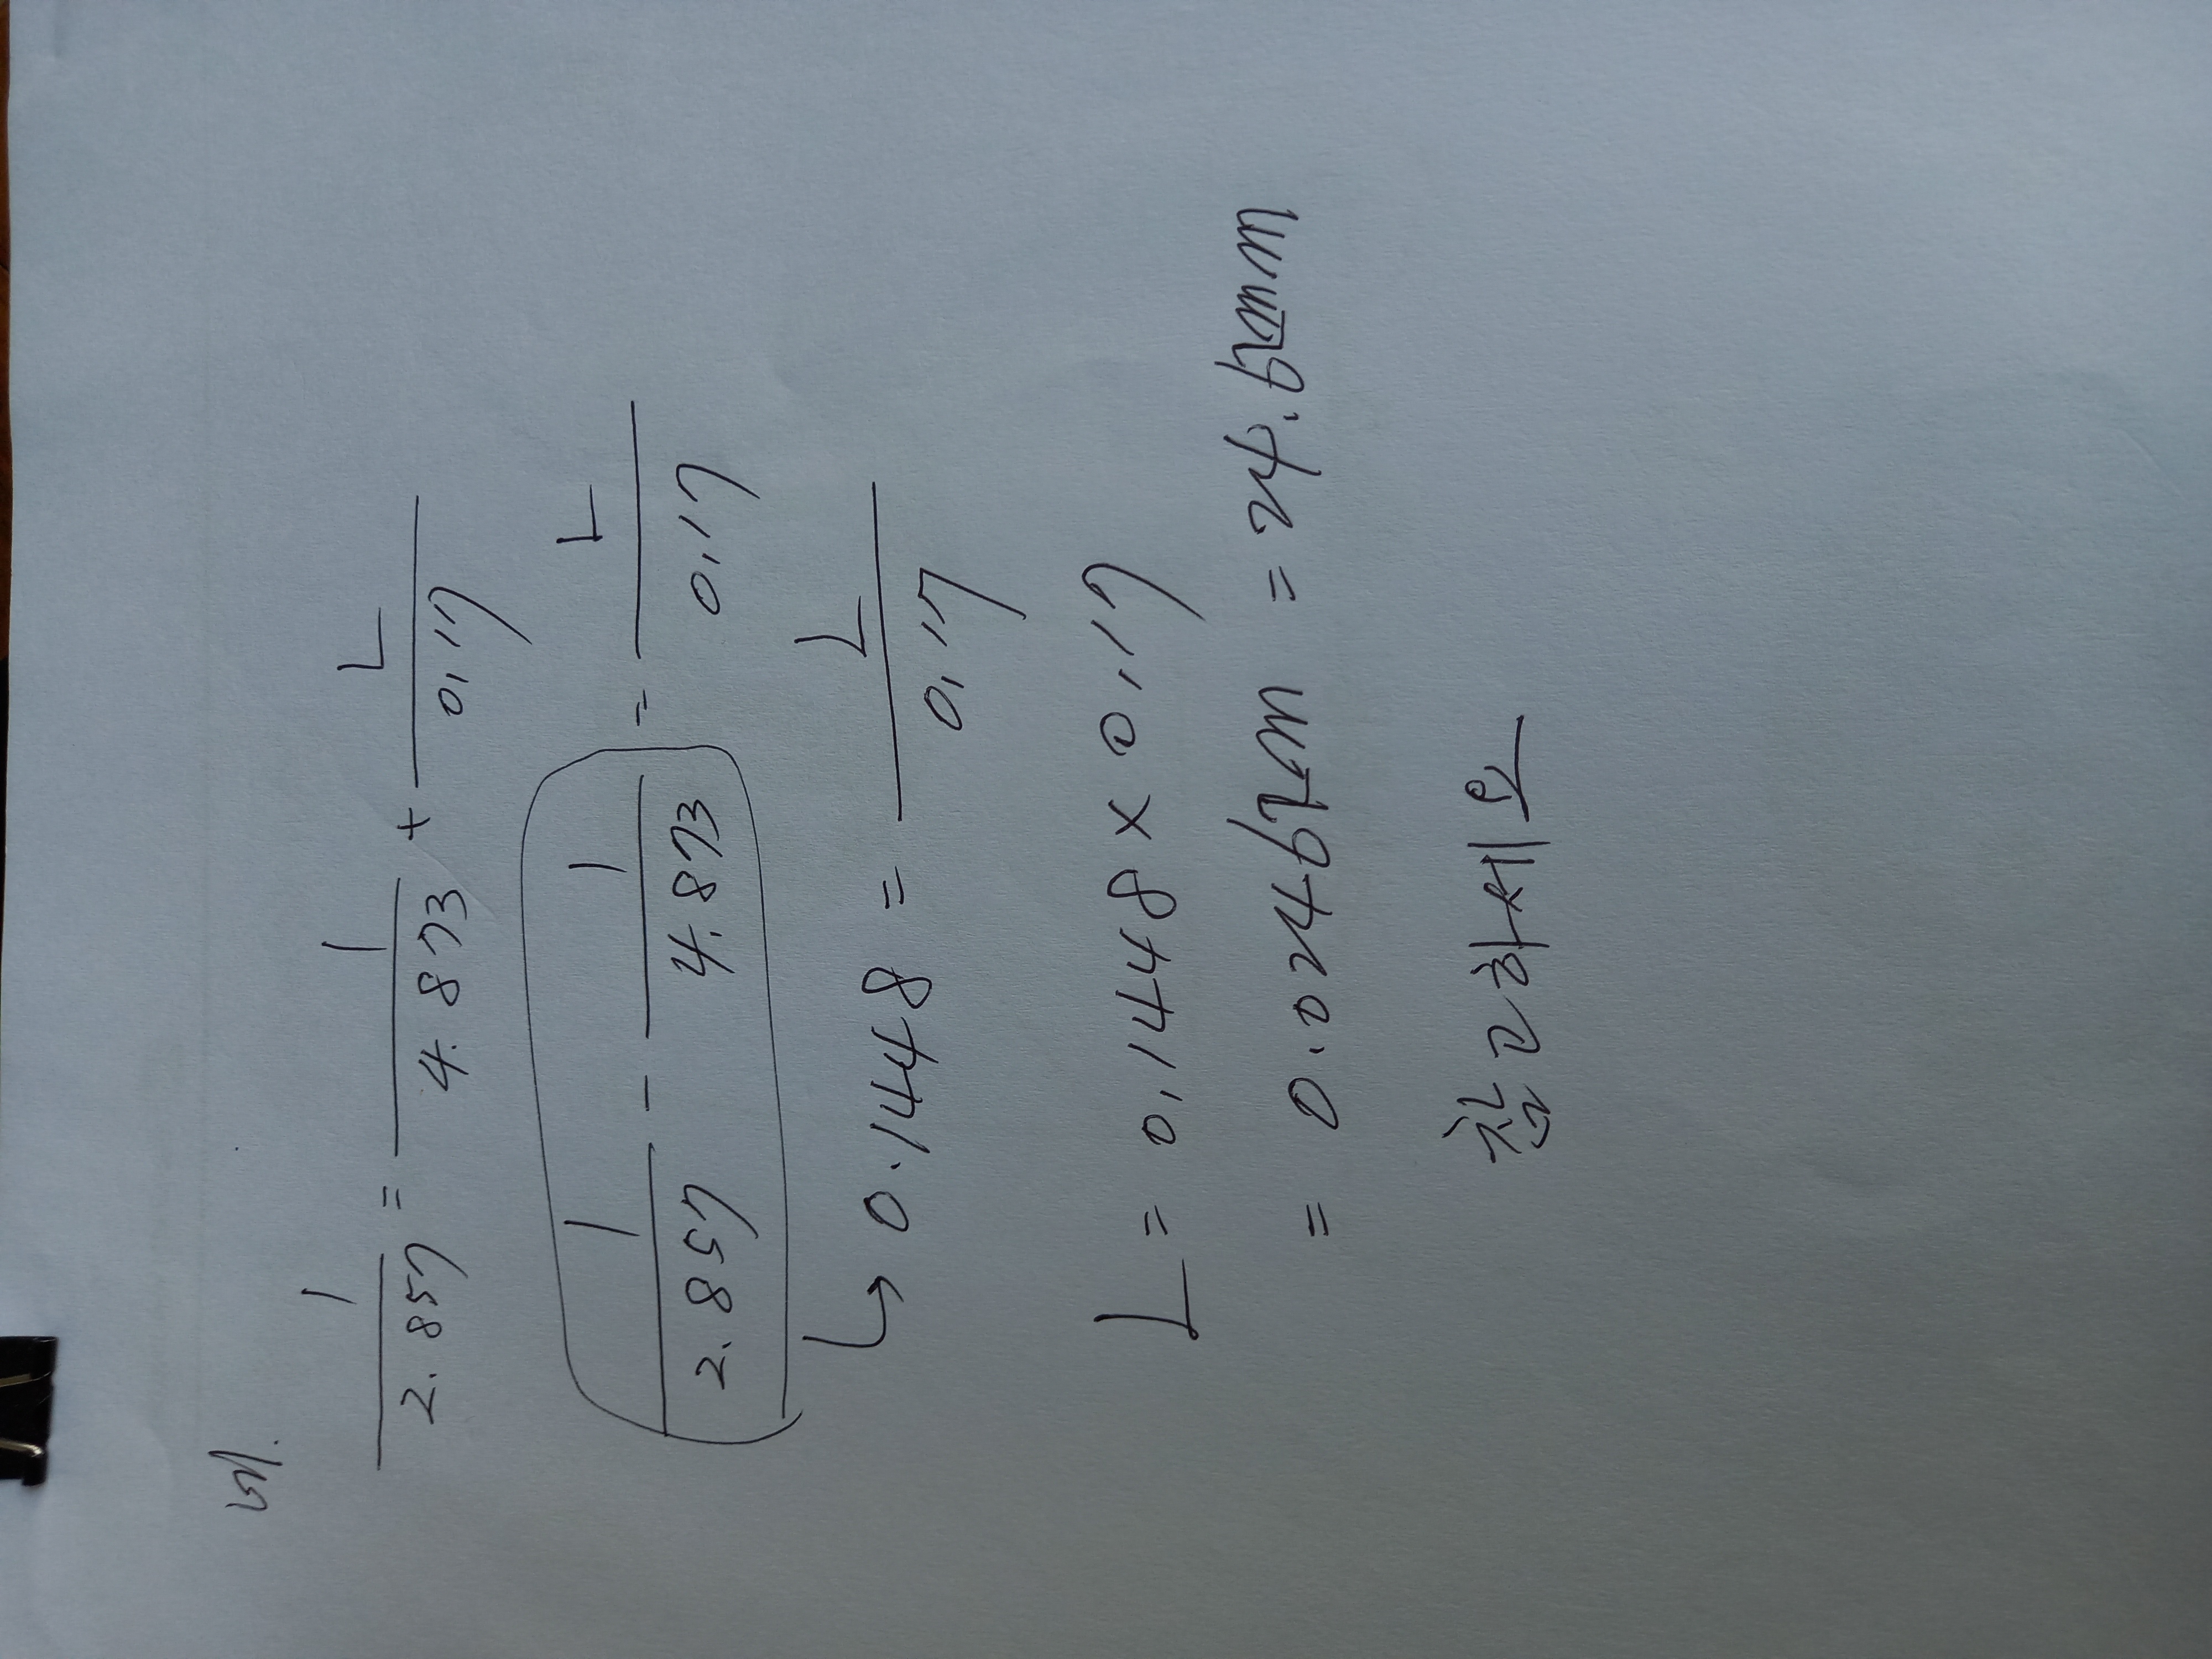 네.
1/2.857 = 1/4.873 + L/0.17
1/2.857 - 1/4.873 = L/0.17
↳ 0.1448 = L/0.17
L = 0.1448 × 0.17
= 0.0246m = 24.6mm
참고하세요